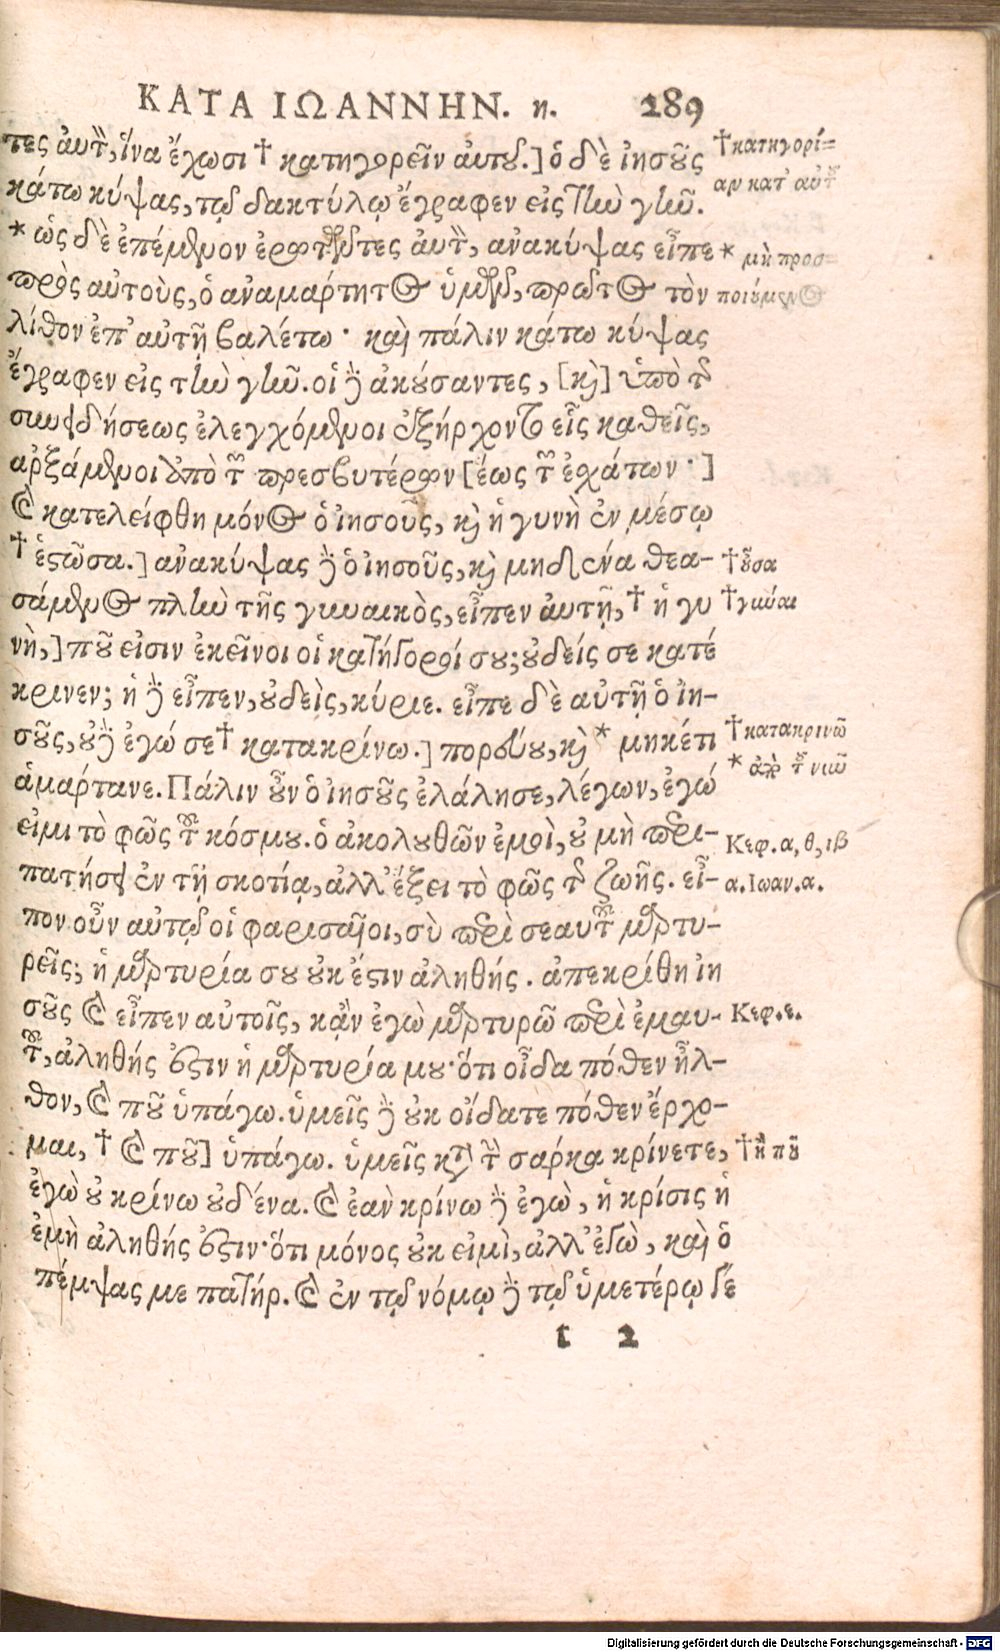 ΚΑΤΑ ΙΩΑΝΝΗΝ. η. 289
τες αὐτὸν, ἵνα ἔχωσι † κατηγορεῖν αὐτοῦ.] ὁ δὲ ἰησοῦς
†κατηγορί=
αν κατ' αὐτοῦ
κάτω κύψας, τῷ δακτύλῳ ἔγραφεν εἰς τὴν γῆν.
* ὡς δὲ ἐπέμενον ἐρωτῶντες αὐτὸν, ἀνακύψας εἶπε
* μὴ προσ=
ποιούμενος
πρὸς αὐτοὺς, ὁ ἀναμάρτητος ὑμῶν, πρῶτος τὸν
λίθον ἐπ' αὐτῇ βαλέτω · καὶ πάλιν κάτω κύψας
ἔγραφεν εἰς τὴν γῆν. οἱ δὲ ἀκούσαντες, [καὶ] ὑπὸ τῆς
συνειδήσεως ἐλεγχόμενοι ἐξήρχοντο εἷς καθεῖς,
ἀρξάμενοι ἀπὸ τῶν πρεσβυτέρων [ἕως τῶν ἐσχάτων · ]
καὶ κατελείφθη μόνος ὁ ἰησοῦς, καὶ ἡ γυνὴ ἐν μέσῳ
† ἑστῶσα.] ἀνακύψας δὲ ὁ ἰησοῦς, καὶ μηδένα θεα-
†οὖσα
σάμενος πλὴν τῆς γυναικὸς, εἶπεν αὐτῇ, † ἡ γυ
†γύναι
νὴ,] ποῦ εἰσιν ἐκεῖνοι οἱ κατήγοροί σου; οὐδείς σε κατέ
κρινεν; ἡ δὲ εἶπεν, οὐδεὶς, κύριε. εἶπε δὲ αὐτῇ ὁ ἰη-
σοῦς, οὐδὲ ἐγώ σε † κατακρίνω.] πορεύου, καὶ * μηκέτι
†κατακρινῶ
* ἀπὸ τοῦ νῦν
ἁμάρτανε. Πάλιν οὖν ὁ ἰησοῦς ἐλάλησε, λέγων, ἐγώ
εἰμι τὸ φῶς τοῦ κόσμου. ὁ ἀκολουθῶν ἐμοὶ, οὐ μὴ περι-
Κεφ. α, θ, ιβ
πατήσει ἐν τῇ σκοτίᾳ, ἀλλ' ἕξει τὸ φῶς τῆς ζωῆς. εἶ-
α. Ιωαν. α.
πον οὖν αὐτῷ οἱ φαρισαῖοι, σὺ περὶ σεαυτοῦ μαρτυ-
ρεῖς; ἡ μαρτυρία σου οὐκ ἔστιν ἀληθής. ἀπεκρίθη ἰη
σοῦς καὶ εἶπεν αὐτοῖς, κἂν ἐγὼ μαρτυρῶ περὶ ἐμαυ-
Κεφ. ε.
τοῦ, ἀληθής ἐστιν ἡ μαρτυρία μου· ὅτι οἶδα πόθεν ἦλ-
θον, καὶ ποῦ ὑπάγω. ὑμεῖς δὲ οὐκ οἴδατε πόθεν ἔρχο-
μαι, † καὶ ποῦ] ὑπάγω. ὑμεῖς κατὰ τὴν σάρκα κρίνετε,
†ἢ ποῦ
ἐγὼ οὐ κρίνω οὐδένα. καὶ ἐὰν κρίνω δὲ ἐγὼ, ἡ κρίσις ἡ
ἐμὴ ἀληθής ἐστιν· ὅτι μόνος οὐκ εἰμὶ, ἀλλ' ἐγὼ, καὶ ὁ
πέμψας με πατήρ. καὶ ἐν τῷ νόμῳ δὲ τῷ ὑμετέρῳ γέ
t 2
Digitalisierung gefördert durch die Deutsche Forschungsgemeinschaft - DFG